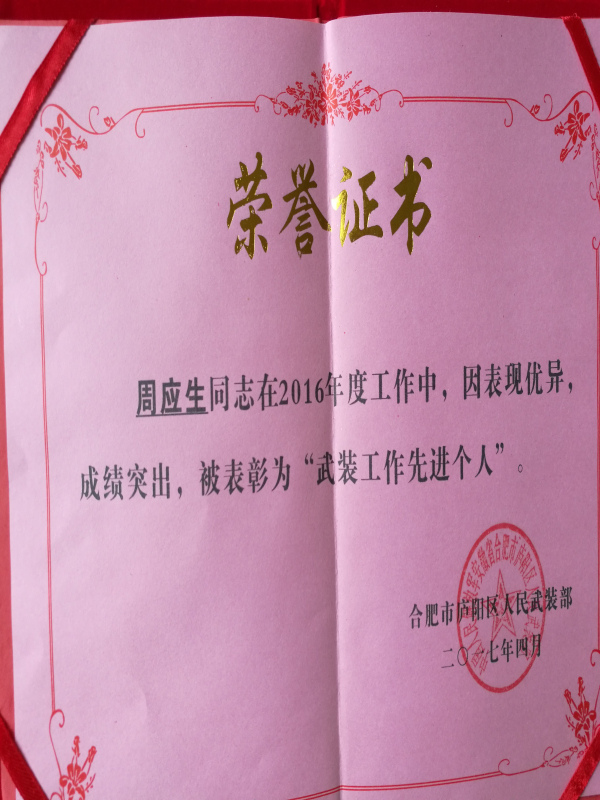 荣誉证书
周应生同志在2016年度工作中，因表现优异，
成绩突出，被表彰为“武装工作先进个人”。
合肥市庐阳区人民武装部
二〇一七年四月